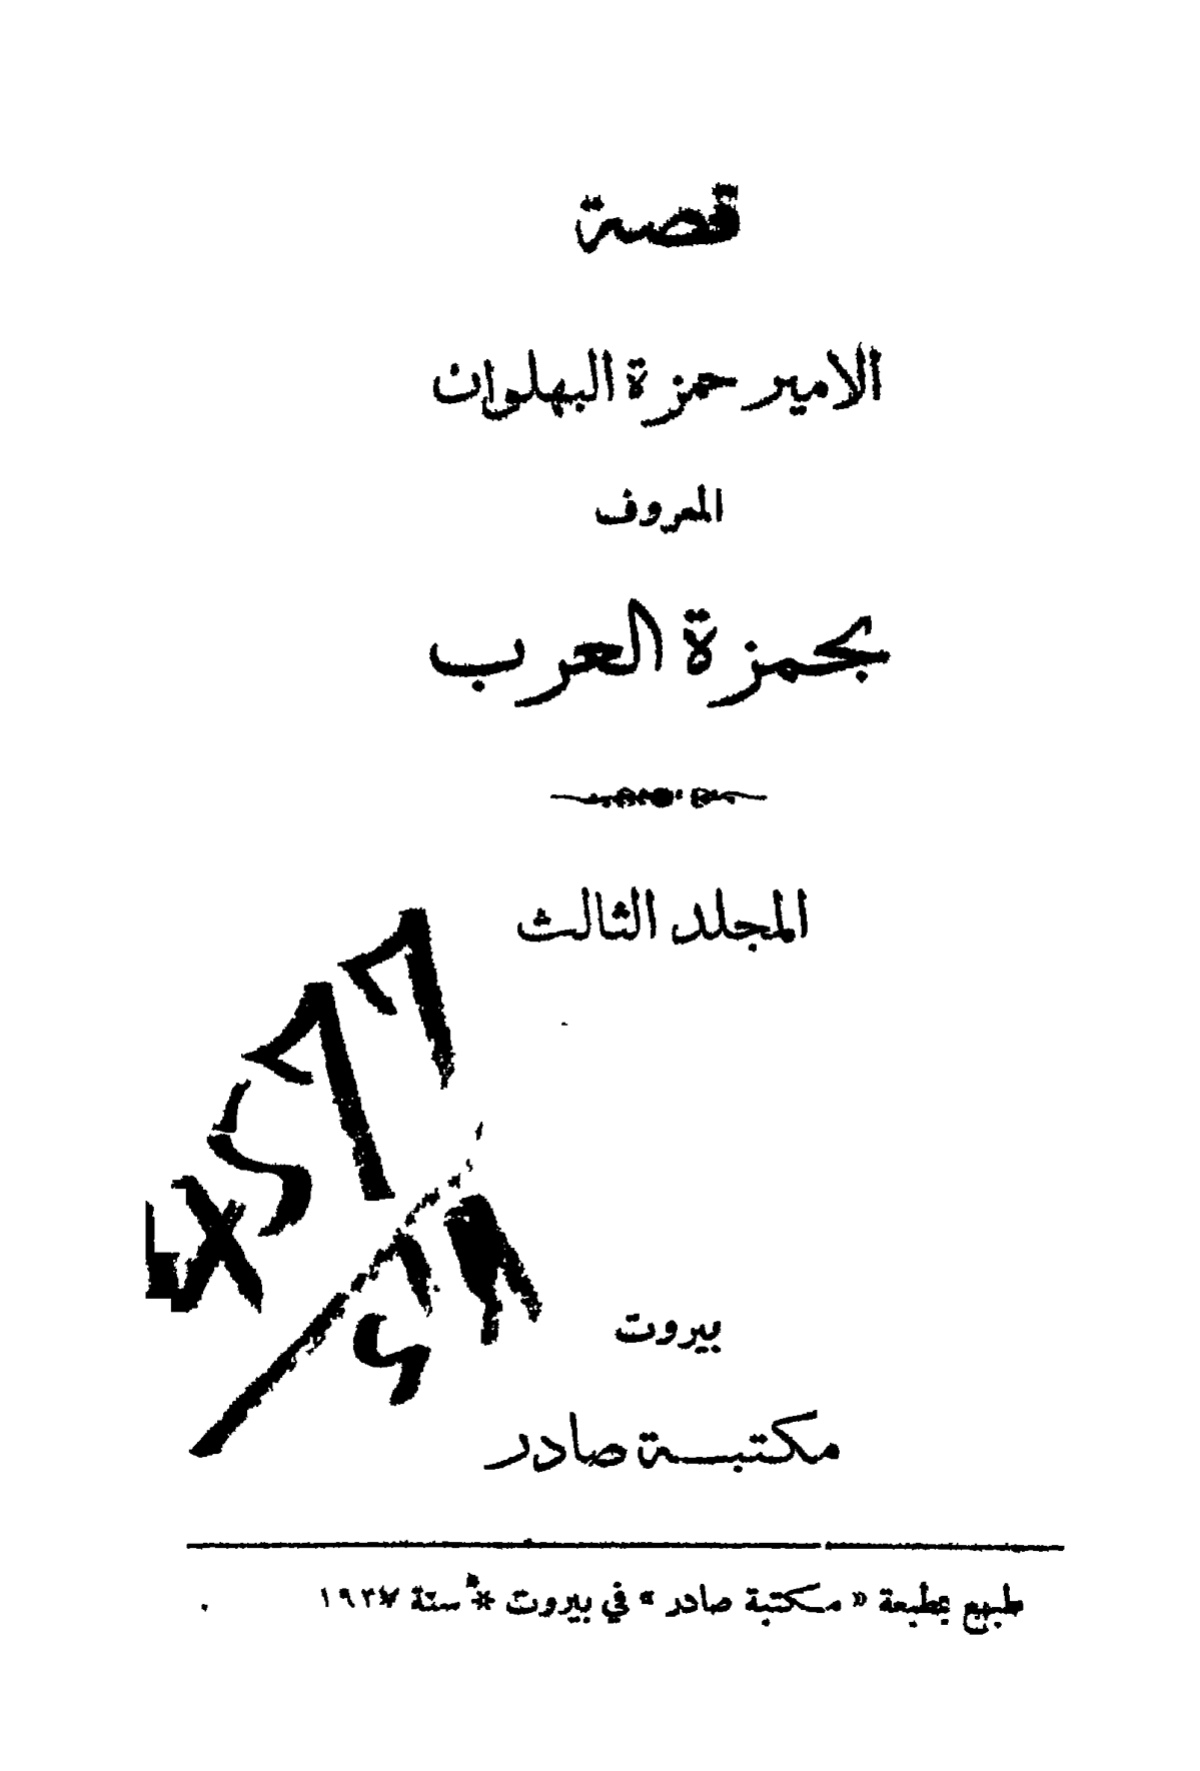 قصة
الامير حمزة البهلوان
المعروف
بحمزة العرب
المجلد الثالث
بيروت
مكتبة صادر
طبع بمطبعة « مكتبة صادر » في بيروت * سنة